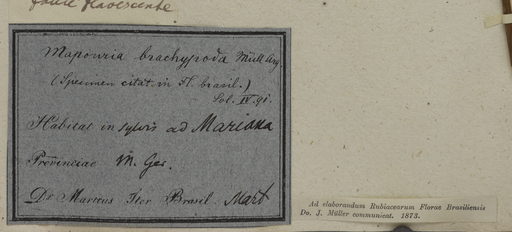 fauce flavescente
Mapouria brachypoda Müll Arg.
(Specimen citat. in Fl. brasil.)
Sol. IV. 91.
Habitat in sylvis ad Mariana
Provinciae M. Ger.
Dr Martius Iter Brasil. Mart
Ad elaborandum Rubiacearum Florae Brasiliensis
Do. J. Müller communicat. 1873.